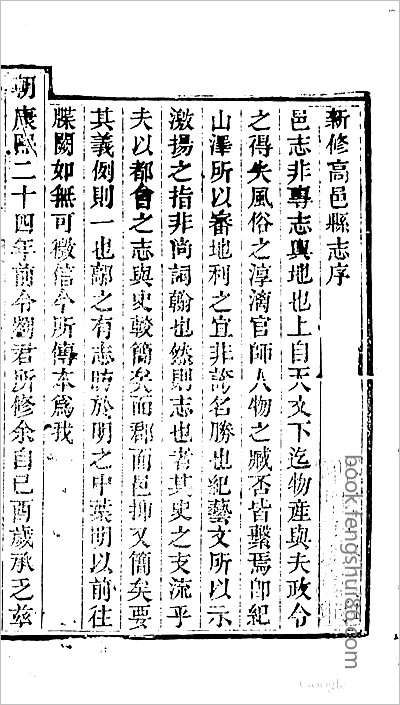 新修高邑縣志序
邑志非專志輿地也上自天文下迄物產與夫政令
之得失風俗之淳漓官師人物之臧否皆繫焉卽紀
山澤所以審地利之宜非誇名勝也紀藝文所以示
激揚之指非尙詞翰也然則志也者其史之支流乎
夫以都會之志與史較簡矣而郡而邑抑又簡矣要
其義例則一也鄗之有志昉於明之中葉明以前往
牒闕如無可徵信今所傳本爲我
朝康熙二十四年前令劉君所修余自己酉歲承乏茲
book.fengshui86.com
Google